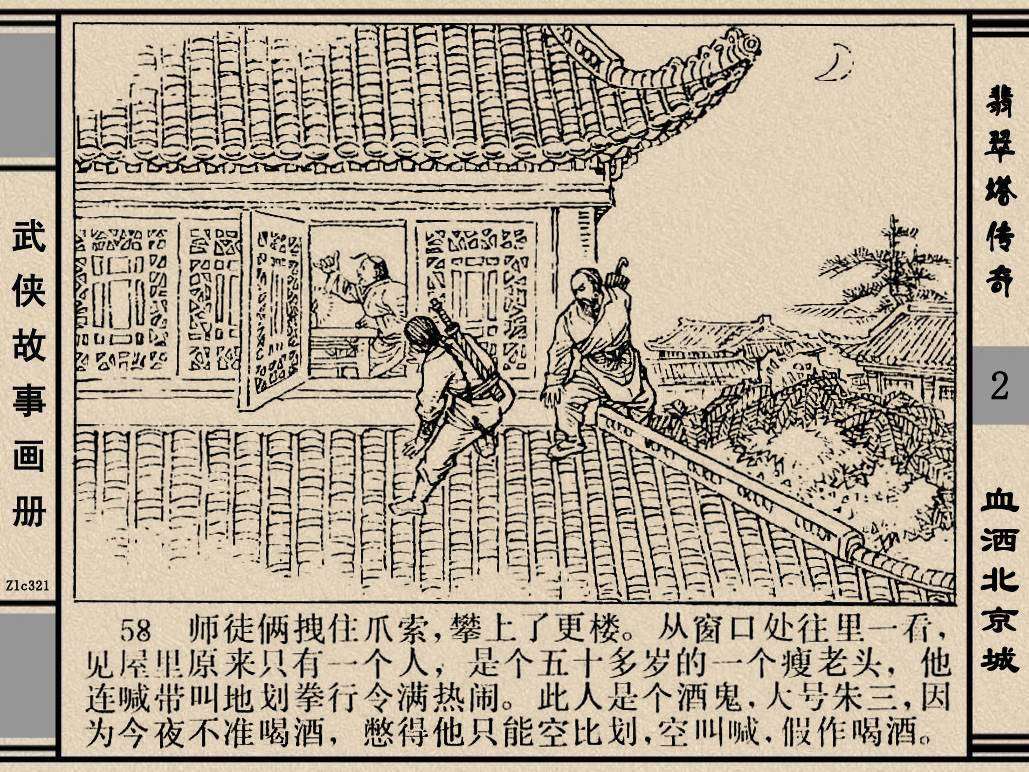 武侠故事画册
Zlc321
58 师徒俩拽住爪索，攀上了更楼。从窗口处往里一看，
见屋里原来只有一个人，是个五十多岁的一个瘦老头，他
连喊带叫地划拳行令满热闹。此人是个酒鬼，大号朱三，因
为今夜不准喝酒，憋得他只能空比划，空叫喊，假作喝酒。
翡翠塔传奇
2
血洒北京城